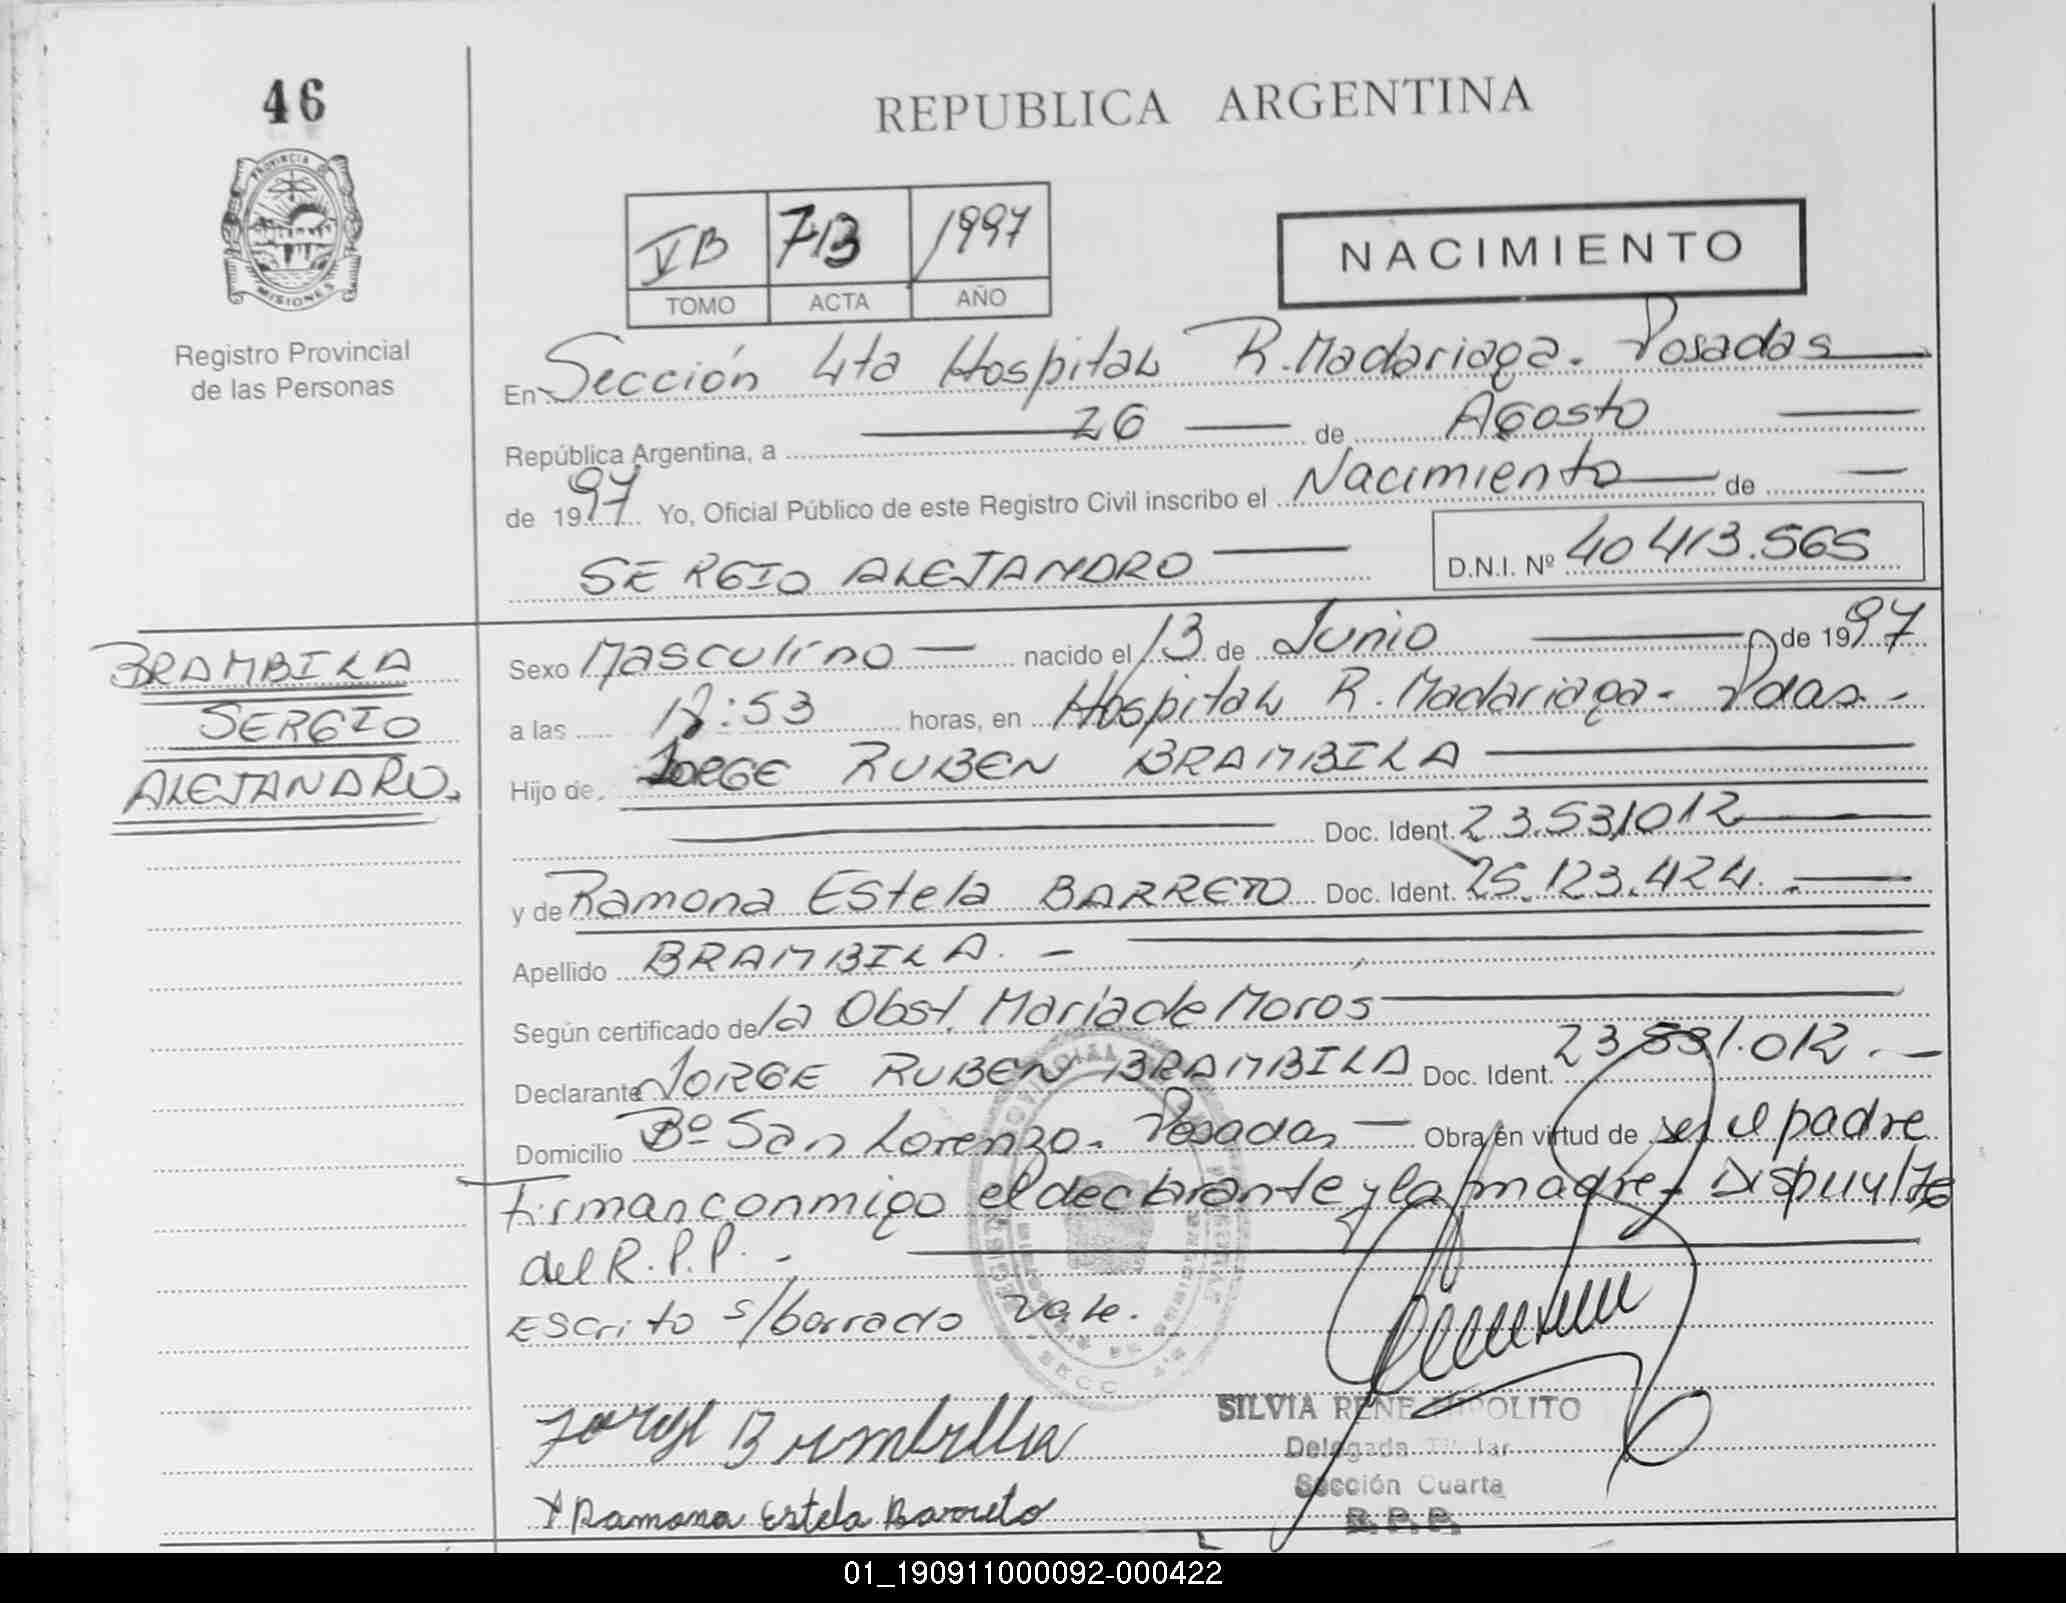 46
REPUBLICA ARGENTINA
PROVINCIA
MISIONES
Registro Provincial
de las Personas
VB 713 1997
TOMO ACTA AÑO
NACIMIENTO
En Sección 4ta Hospital R. Madariaga. Posadas
República Argentina, a 26 de Agosto
de 1997 Yo, Oficial Público de este Registro Civil inscribo el Nacimiento de
SERGIO ALEJANDRO D.N.I. Nº 40 413.565
BRAMBILA
SERGIO
ALEJANDRO.
Sexo Masculino nacido el 13 de Junio de 1997
a las :53 horas, en Hospital R. Madariaga. Pdas.
Hijo de JORGE RUBEN BRAMBILA
Doc. Ident. 23.531012
y de Ramona Estela BARRETO Doc. Ident. 25.123.424.
Apellido BRAMBILA.
Según certificado de la Obst. María de Moros
Declarante JORGE RUBEN BRAMBILA Doc. Ident. 23 531.012.
Domicilio Bº San Lorenzo. Posadas Obra en virtud de ser el padre
firman conmigo el declarante y la madre
del R.P.P.
Escrito s/borrado vale.
Jorge Brambilla
Ramona Estela Barreto
SILVIA RENE HIPOLITO
Delegada Titular
Sección Cuarta
R.P.P.
01_190911000092-000422